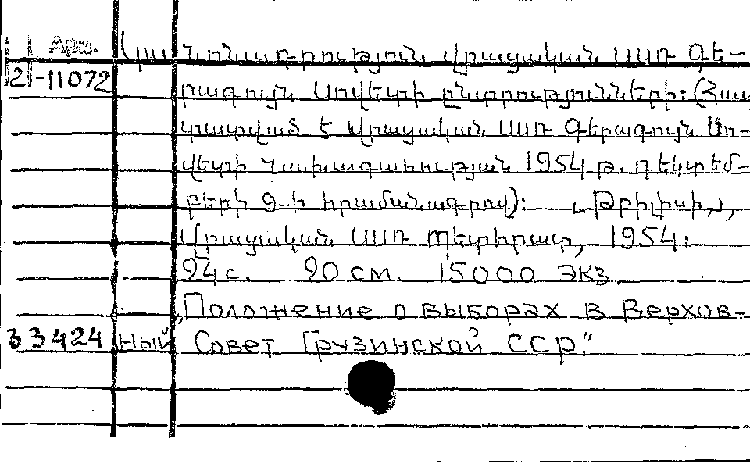 Арм.
Կանոնադրություն Վրացական ՍՍՌ Գե-
2-11072
րագույն Սովետի ընտրությունների: (Հաս
տատված է Վրացական ՍՍՌ Գերագույն Սո-
վետի Նախագահության 1954 թ. դեկտեմ-
բերի 9-ի հրամանագրով): „Թբիլիսի„,
Վրացական ՍՍՌ Պետհրատ, 1954:
94 с. 20 см. 15000 экз.
„Положение о выборах в Верхов-
33424 ный Совет Грузинской ССР."